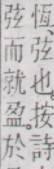 恆弦也按詩
弦而就盈於